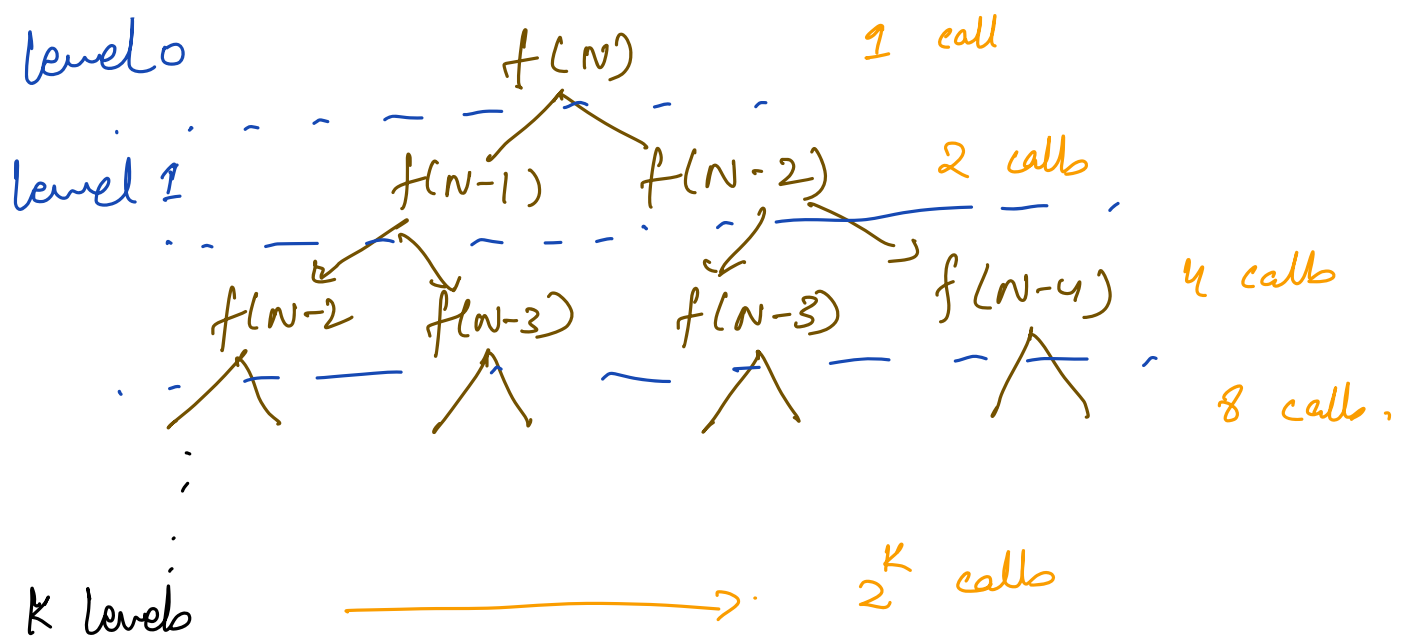 level 0 f(N) 1 call
level 1 f(N-1) f(N-2) 2 calls
f(N-2 f(N-3) f(N-3) f(N-4) 4 calls
8 calls.
K levels 2^K calls